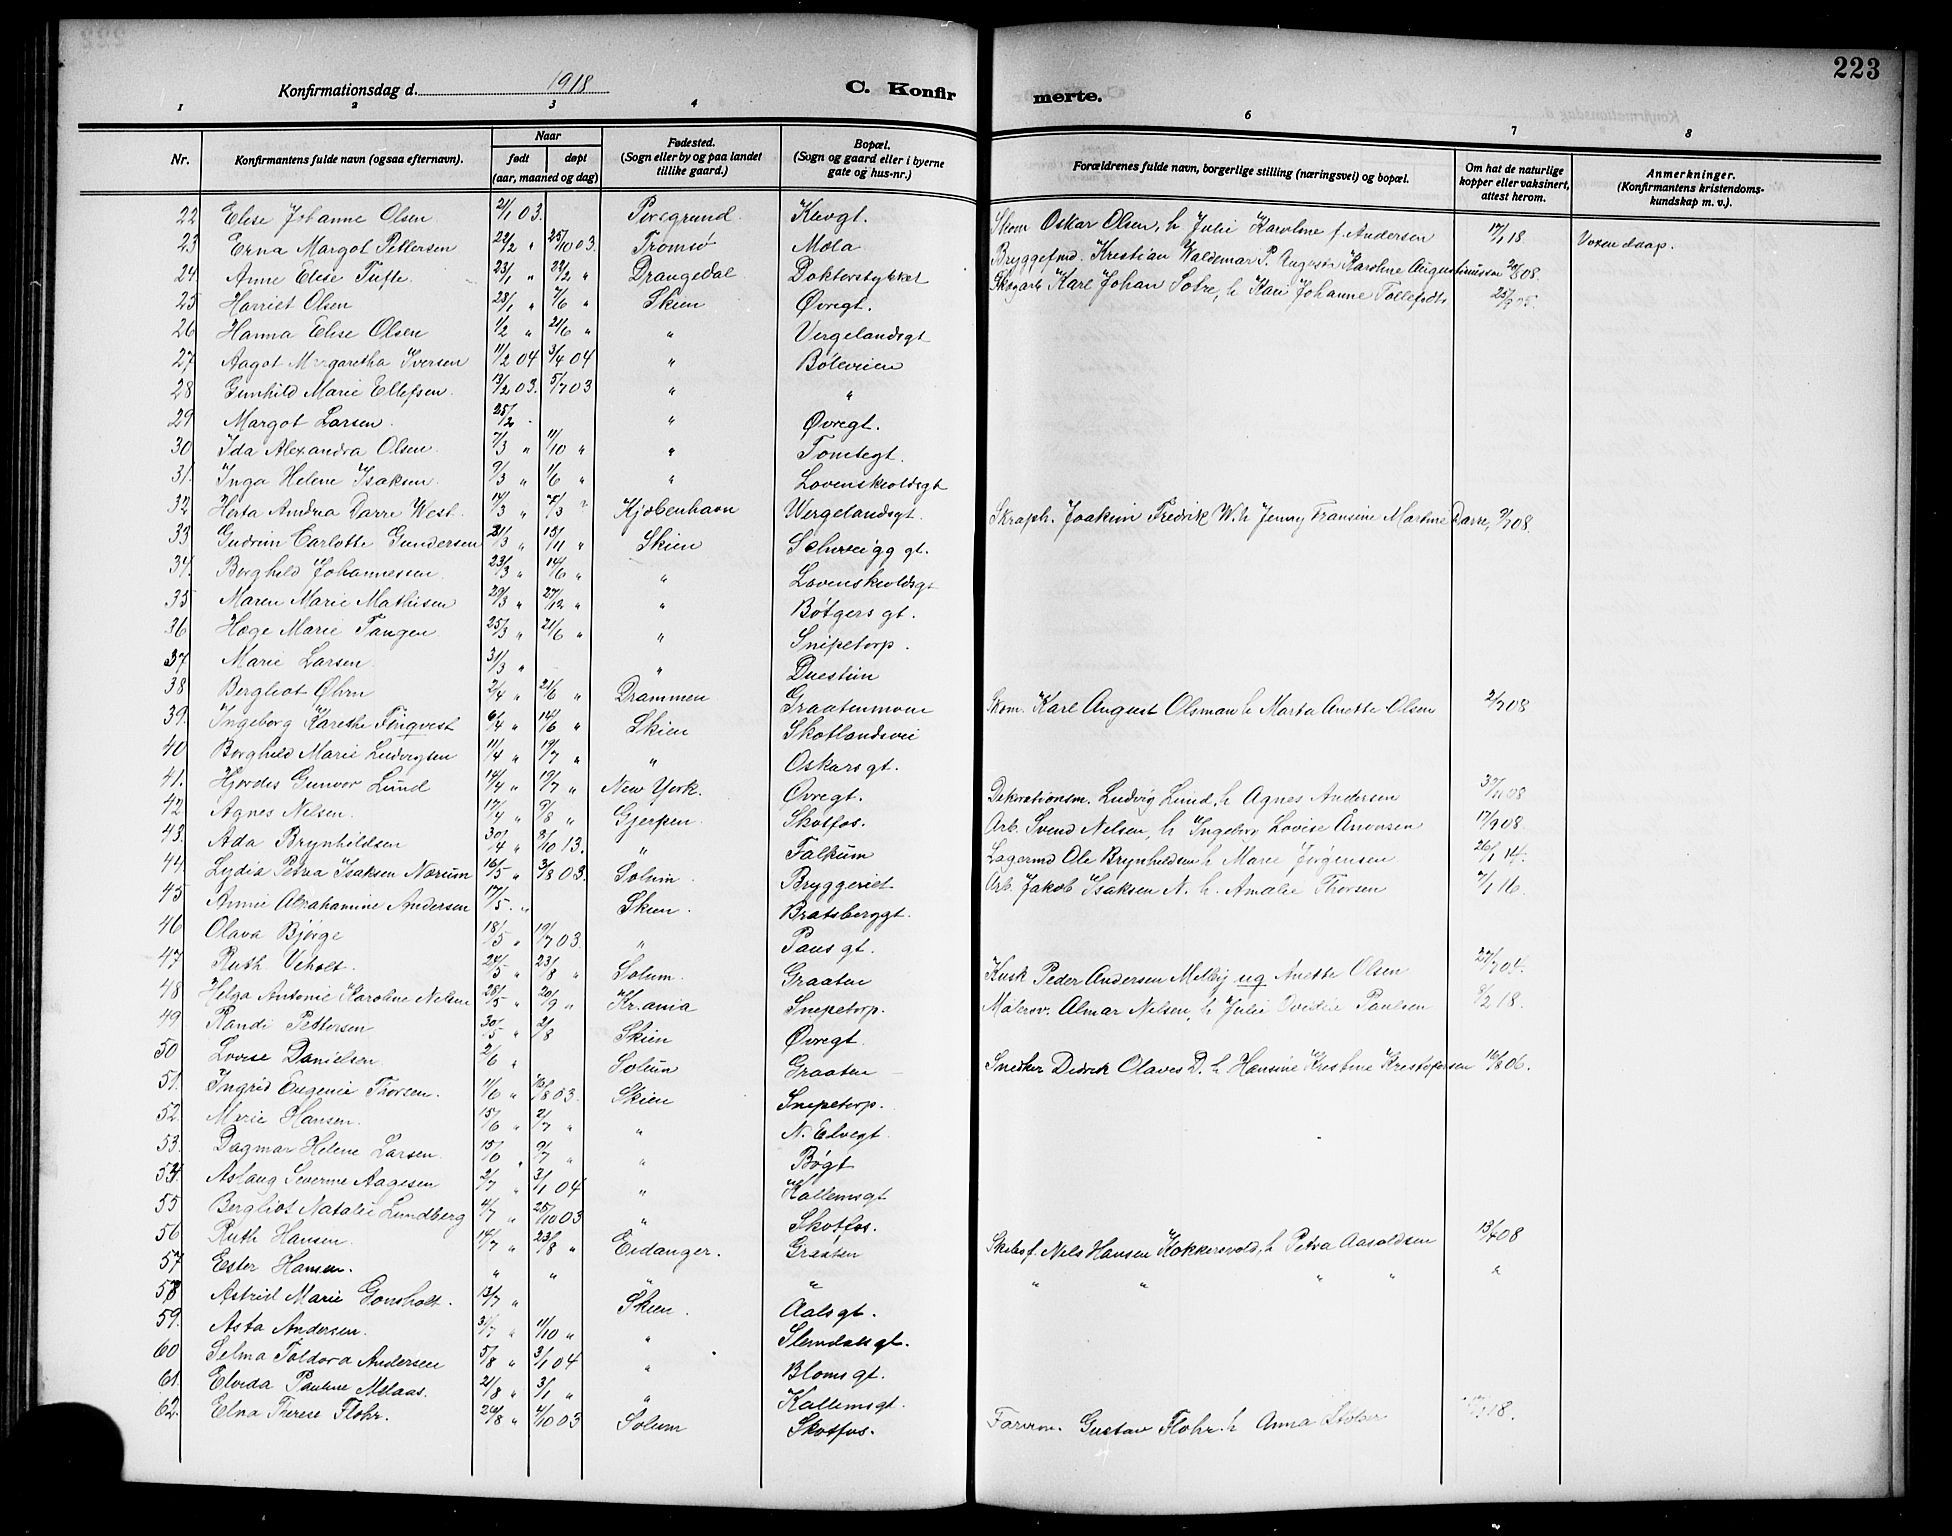 223
Konfirmationsdag d. 1918
C. Konfirmerte.
1 2 3 4 5 6 7 8
Nr.
Konfirmantens fulde navn (ogsaa efternavn).
Naar
født døpt
(aar, maaned og dag)
Fødested.
(Sogn eller by og paa landet
tillike gaard.)
Bopæl.
(Sogn og gaard eller i byerne
gate og hus-nr.)
Forældrenes fulde navn, borgerlige stilling (næringsvei) og bopæl.
Om hat de naturlige
kopper eller vaksinert,
attest herom.
Anmerkninger.
(Konfirmantens kristendoms-
kundskap m. v.).
22 Elise Johanne Olsen 2/1 03. Porsgrund Skom Oskar Olsen, h Julie Karoline f. Andersen 17/1 18.
23 Erna Margot Pettersen 22/2 " 25/10 03 Tromsø Mæla Bryggefmd. Kristian Waldemar P. Augusta Karoline 08. Voxen daap.
24 Anne Elise Tufte. 23/1 " 22/2 " Drangedal Doktorstykket Karl Johan Sotre, h Kari Johanne
25 Harriet Olsen 23/1 " 7/6 " Skien Øvregt.
26 Hanna Elise Olsen 1/2 " 21/6 " " Vergelandsgt
27 Aagot Margaretha Iversen 11/2 04 3/4 04 " Böleveien
28 Gunhild Marie Ellefsen. 13/2 03. 5/7 03 " "
29 Margot Larsen. 25/2 " Øvregt.
30 Ida Alexandra Olsen. 7/3 " 11/10 " " Tomtegt.
31. Inga Helene Isaksen. 9/3 " 1/6 " " Lovenskioldsgt
32 Herta Andrea Darre West. 14/3 " Kjøbenhavn Wergelandsgt. Joakim Fredrik W. h Jenny Fransine Martine Darre, 9/7 08.
33 Gudrun Carlotte Gundersen 21/3 " 15/11 " Skien gt.
34. Borghild Johannessen. 23/3 " 14/6 " " Lovenskioldsgt
35 Maren Marie Mathisen 29/3 " 27/12 " " Bötgers gt.
36 Hæge Marie Tangen 25/3 " 21/6 " " Snipetorp.
37 Marie Larsen. 31/3 " " Duestien
38 Bergliot Øhrn 2/4 " 21/6 " Drammen Graatenmoen Skom. Karl August Olsman h Marta Anette Olsen 2/7 08
39. Ingeborg Karethe 6/4 " 14/6 " Skien Skotlandsvei
40 Borghild Marie Ludvigsen 11/4 " 19/7 " " Oskars gt.
41. Hjørdis Gunvor Lund 14/4 " 19/7 " New York. Øvregt. Dekorationsm. Ludvig Lund, h Agnes Andersen
42 Agnes Nelsen. 17/4 " 9/8 " Gjerpen Skotfos. Arb. Svend Nelsen, h Ingeborg Lovise Aronsen 17/9 08.
43. Ada Brynhildsen 30/4 " 8/10 13. " Falkum Lagermd Ole Brynhildsen h Marie Jørgensen 26/1 14.
44. Lydia Petra Isaksen Nærum 16/5 " 3/8 03. Solum. Bryggeriet Arb. Jakob Isaksen N. h. Amalie Thorsen 7/1 16.
45 Annie Abrahamine Andersen 17/5. " Skien. Bratsberggt.
46 Olava Bjørge 18/5 " 19/7 03. " Paus gt.
47 Ruth Viholt. 24/5 " 23/8 " Solum. Graaten Kusk Peder Andersen Melbÿ ug Anette Olsen 27/7 04.
48 Helga Antonie Karoline Nelsen 28/5 " 20/9 " Kr.ania Snipetorp. Almar Nelsen, h Julie Ovidie Paulsen 8/2 18.
49 Randi Pettersen 30/5 " 2/8 Skien Øvregt.
50 Lovise Danielsen. 2/6 " Solum Graaten Snedker Didrik Olaves D. h Hansine Kristine Kristofersen 16/8 06.
51. Ingrid Eugenie Thorsen. 11/6 " 16/8 03. Skien Snipetorp.
52. Marie Hansen. 15/6 " 2/7 " " N. Elvegt
53. Dagmar Helene Larsen. 15/6 " 9/7 " " Bøgt
54. Aslaug Severine Aagesen 2/7 " 3/1 04 " Kallemsgt
55 Bergliot Natalie Lundberg 4/7 " 25/10 03 " Skotfos.
56 Ruth Hansen. 14/7 " 23/8 " Eidanger. Graaten Nels Hansen Kokkersvold, h Petra Aasoldsen 08
57 Ester Hansen. " " " " " " " " "
58 Astrid Marie Gonsholt. 13/7 " Skien. Aalsgt.
59. Asta Andersen. 31/7 " 11/10 " " Stendals gt.
60 Selma Toldora Andersen 5/8 " 3/1 04 " Bloms gt.
61. Elvida Pauline Melaas. 21/8 " 3/1 " " Kallemsgt.
62. Elna Therese Flohr. 26/8 " 4/10 03 Solum Skotfos. Gustav Flohr h Anna 18.